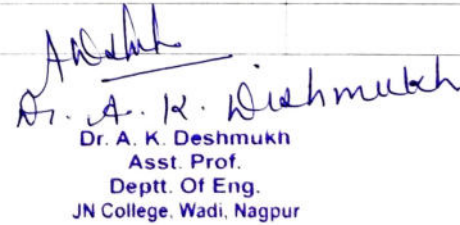 Dr. A. K. Deshmukh
Dr. A. K. Deshmukh
Asst. Prof.
Deptt. Of Eng.
JN College, Wadi, Nagpur